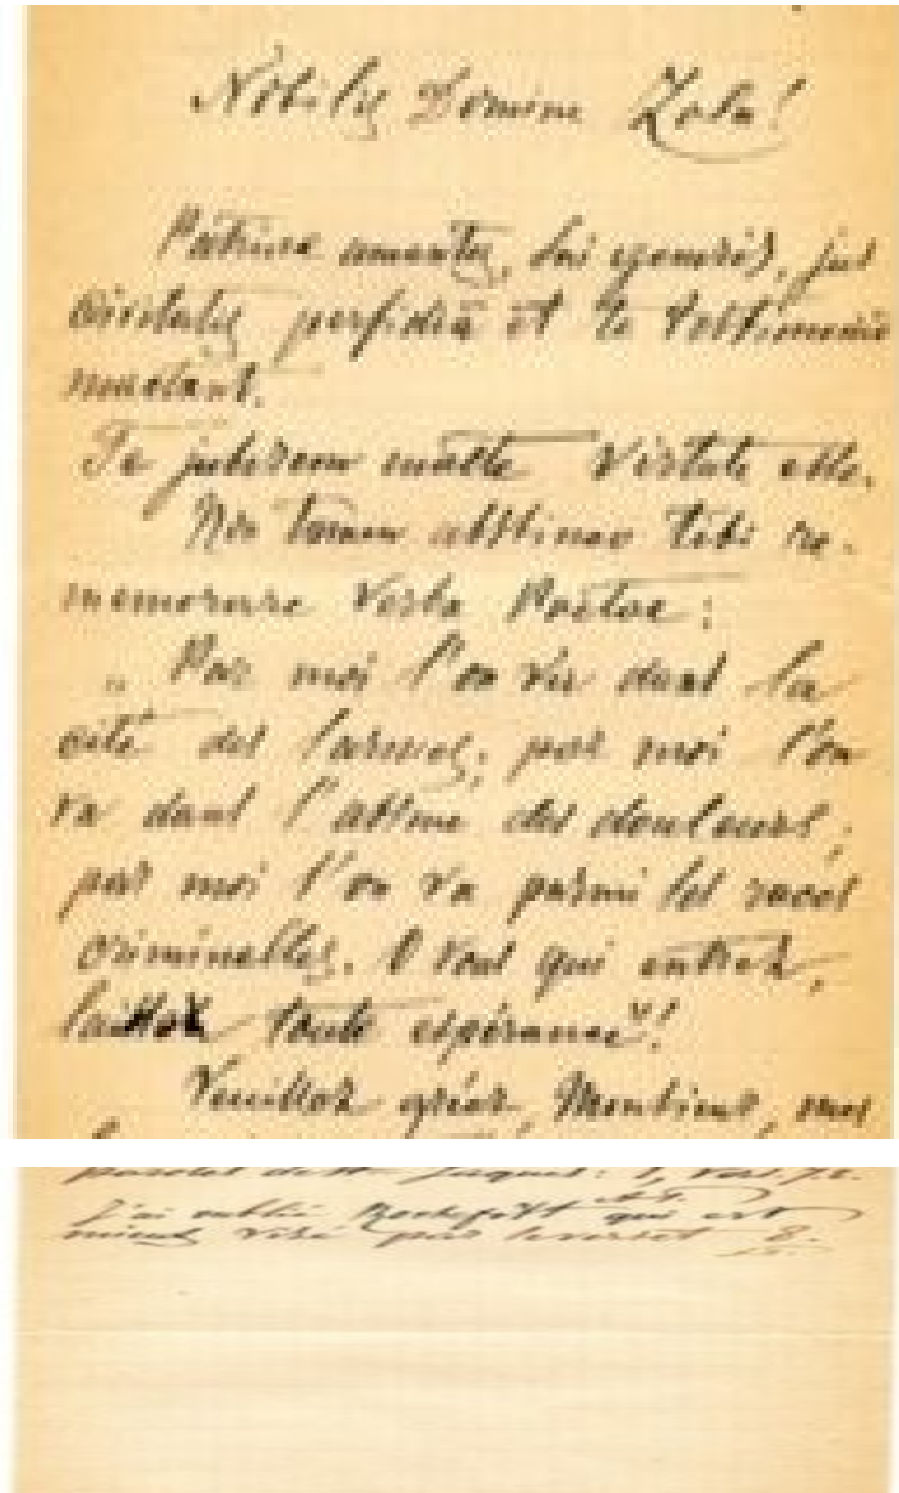 Nobilis Domine Zola!
Patriae amantes, sui generis, jus
civitatis perfidia et te testimonio
mactant.
Te jubeum macte virtute esse.
Non tamen abstineo tibi re-
memorare verba Poetae:
„Par moi l'on va dans la
cité des larmes; par moi l'on
va dans l'abîme des douleurs;
par moi l'on va parmi les races
criminelles. O vous qui entrez,
laissez toute espérance"!
Veuillez gréer, Monsieur, mes
paroles de St Jacques: 1, vers. 7.
J'ai oublié Rochefort qui est
mieux visé par le verset 8.